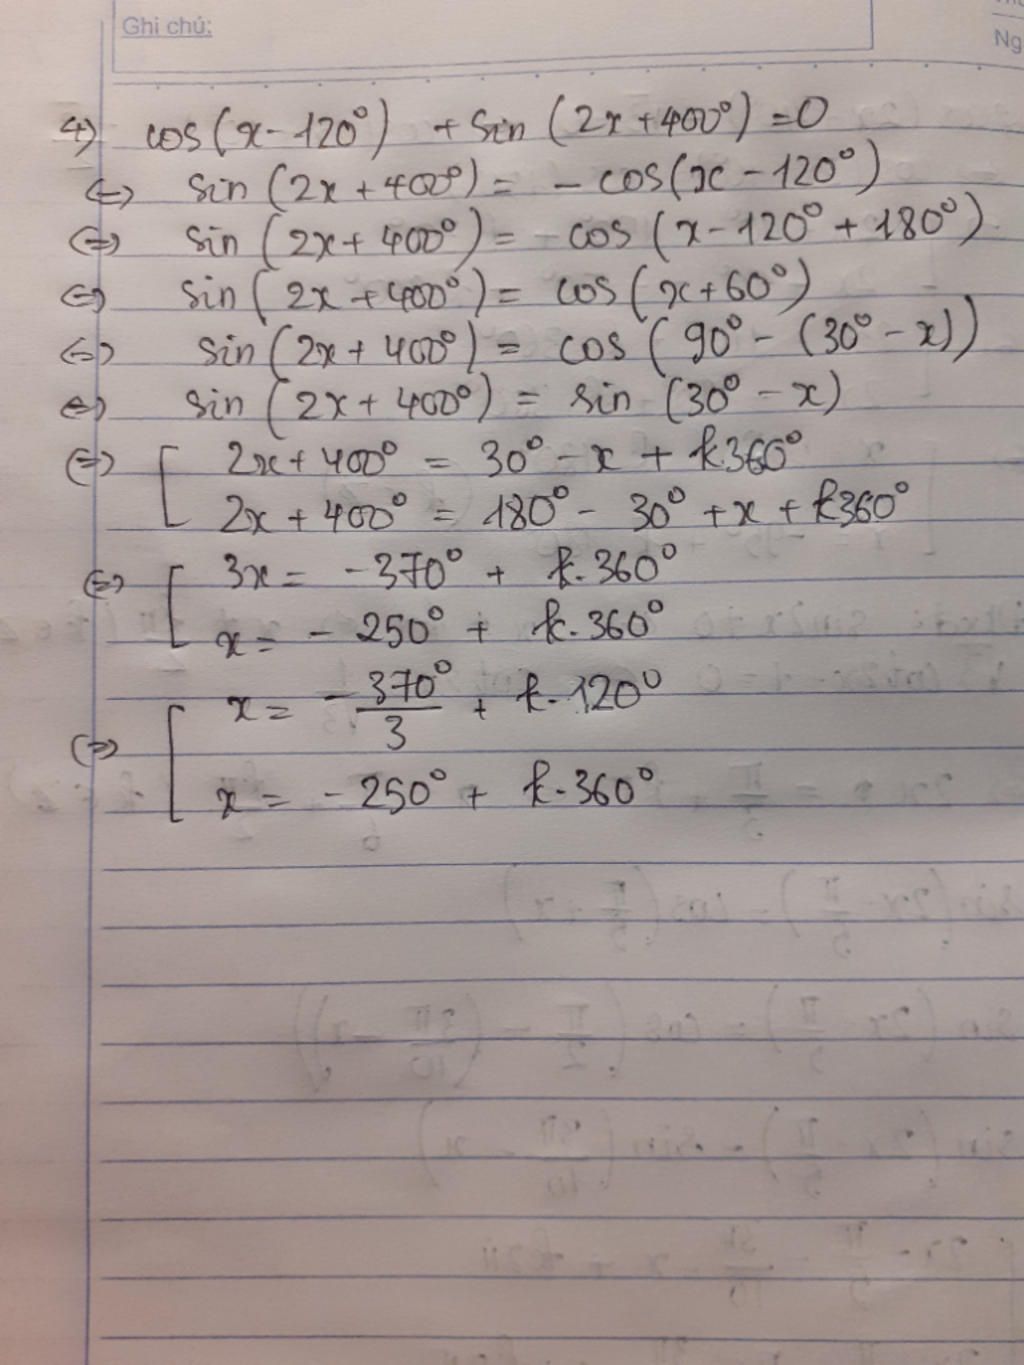 Ghi chú:
Ng
4) cos(x-120°) + Sin (2x+400°) =0
<=> sin (2x+400°) = - cos(x - 120°)
<=> sin (2x+ 400°) = cos (x-120° + 180°)
<=> sin( 2x +400°) = cos (x+60°)
<=> sin (2x+ 400°) = cos ( 90° - (30° - x))
<=> sin (2x+ 400°) = sin (30° - x)
<=> [ 2x+ 400° = 30° - x + k360°
2x + 400° = 180° - 30° + x + k360°
<=> [ 3x = -370° + k.360°
x = - 250° + k.360°
<=> [ x = -370°/3 + k.120°
x = - 250° + k.360°